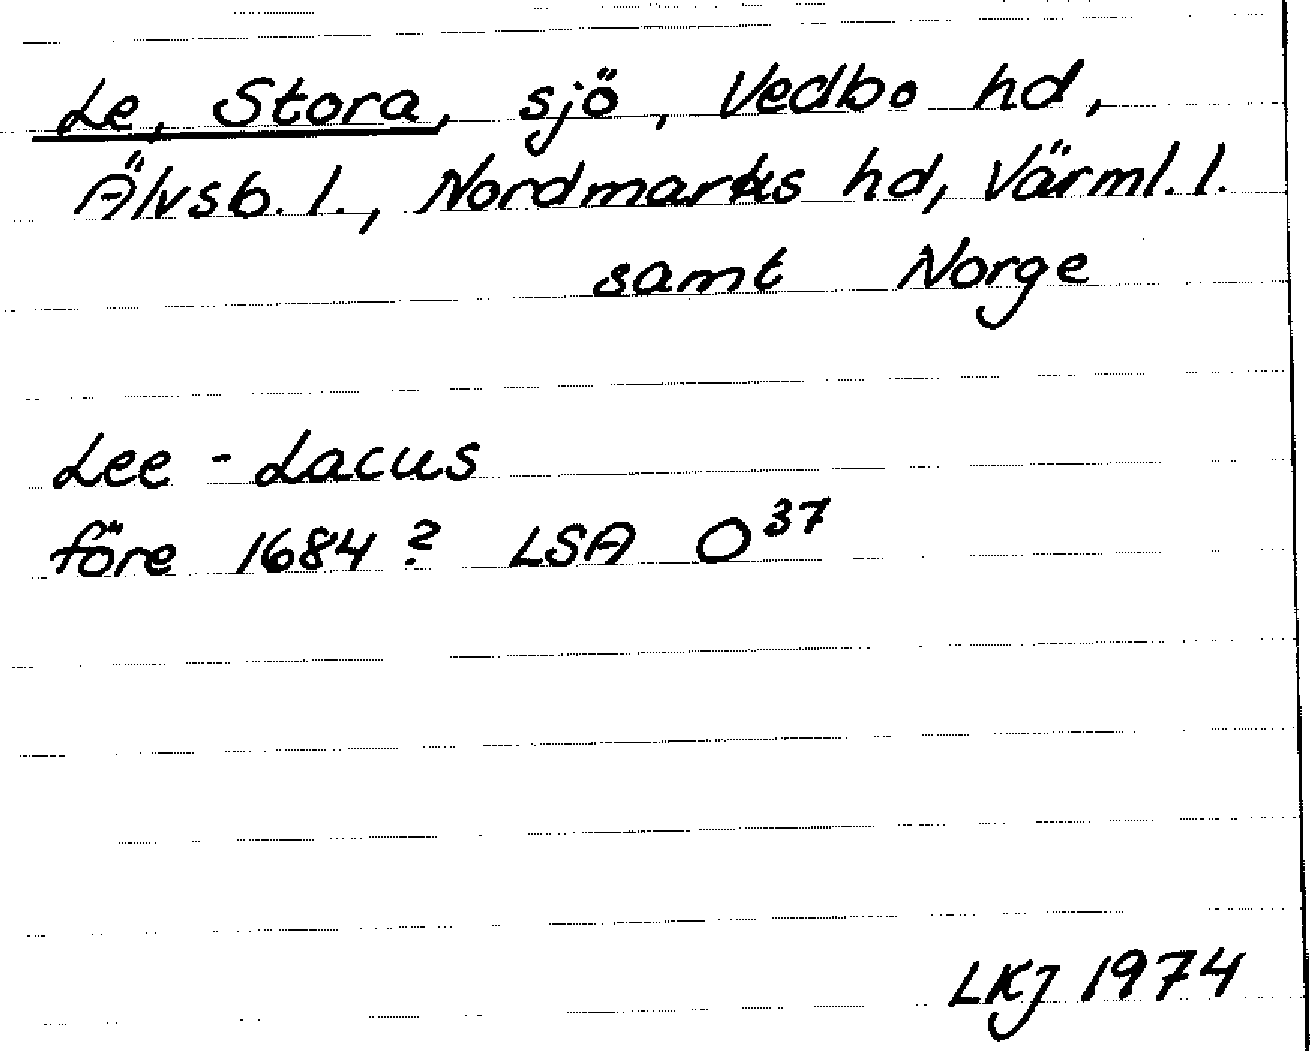 Le, Stora, sjö, Vedbo hd,
Älvsb. l., Nordmarks hd, Värml. l.
samt Norge
Lee - Lacus
före 1684? LSA O³⁷
LKJ 1974